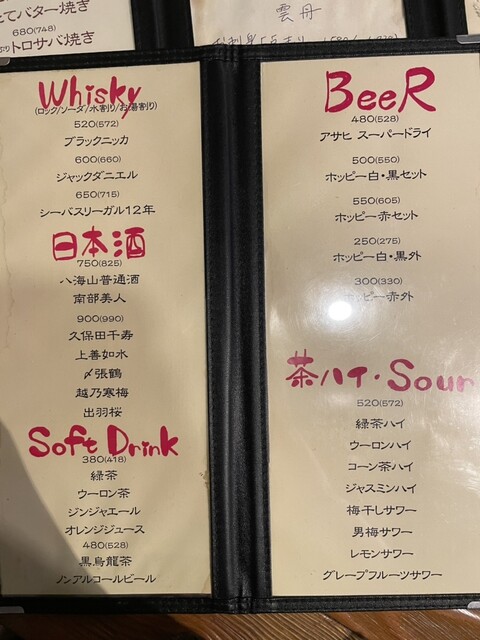 てバター焼き
680(748)
トロサバ焼き
雲丹
Whisky
(ロック/ソーダ/水割り/お湯割り)
520(572)
ブラックニッカ
600(660)
ジャックダニエル
650(715)
シーバスリーガル12年
日本酒
750(825)
八海山普通酒
南部美人
900(990)
久保田千寿
上善如水
〆張鶴
越乃寒梅
出羽桜
Soft Drink
380(418)
緑茶
ウーロン茶
ジンジャエール
オレンジジュース
480(528)
黒烏龍茶
ノンアルコールビール
BeeR
480(528)
アサヒ スーパードライ
500(550)
ホッピー白・黒セット
550(605)
ホッピー赤セット
250(275)
ホッピー白・黒外
300(330)
ホッピー赤外
茶ハイ・Sour
520(572)
緑茶ハイ
ウーロンハイ
コーン茶ハイ
ジャスミンハイ
梅干しサワー
男梅サワー
レモンサワー
グレープフルーツサワー